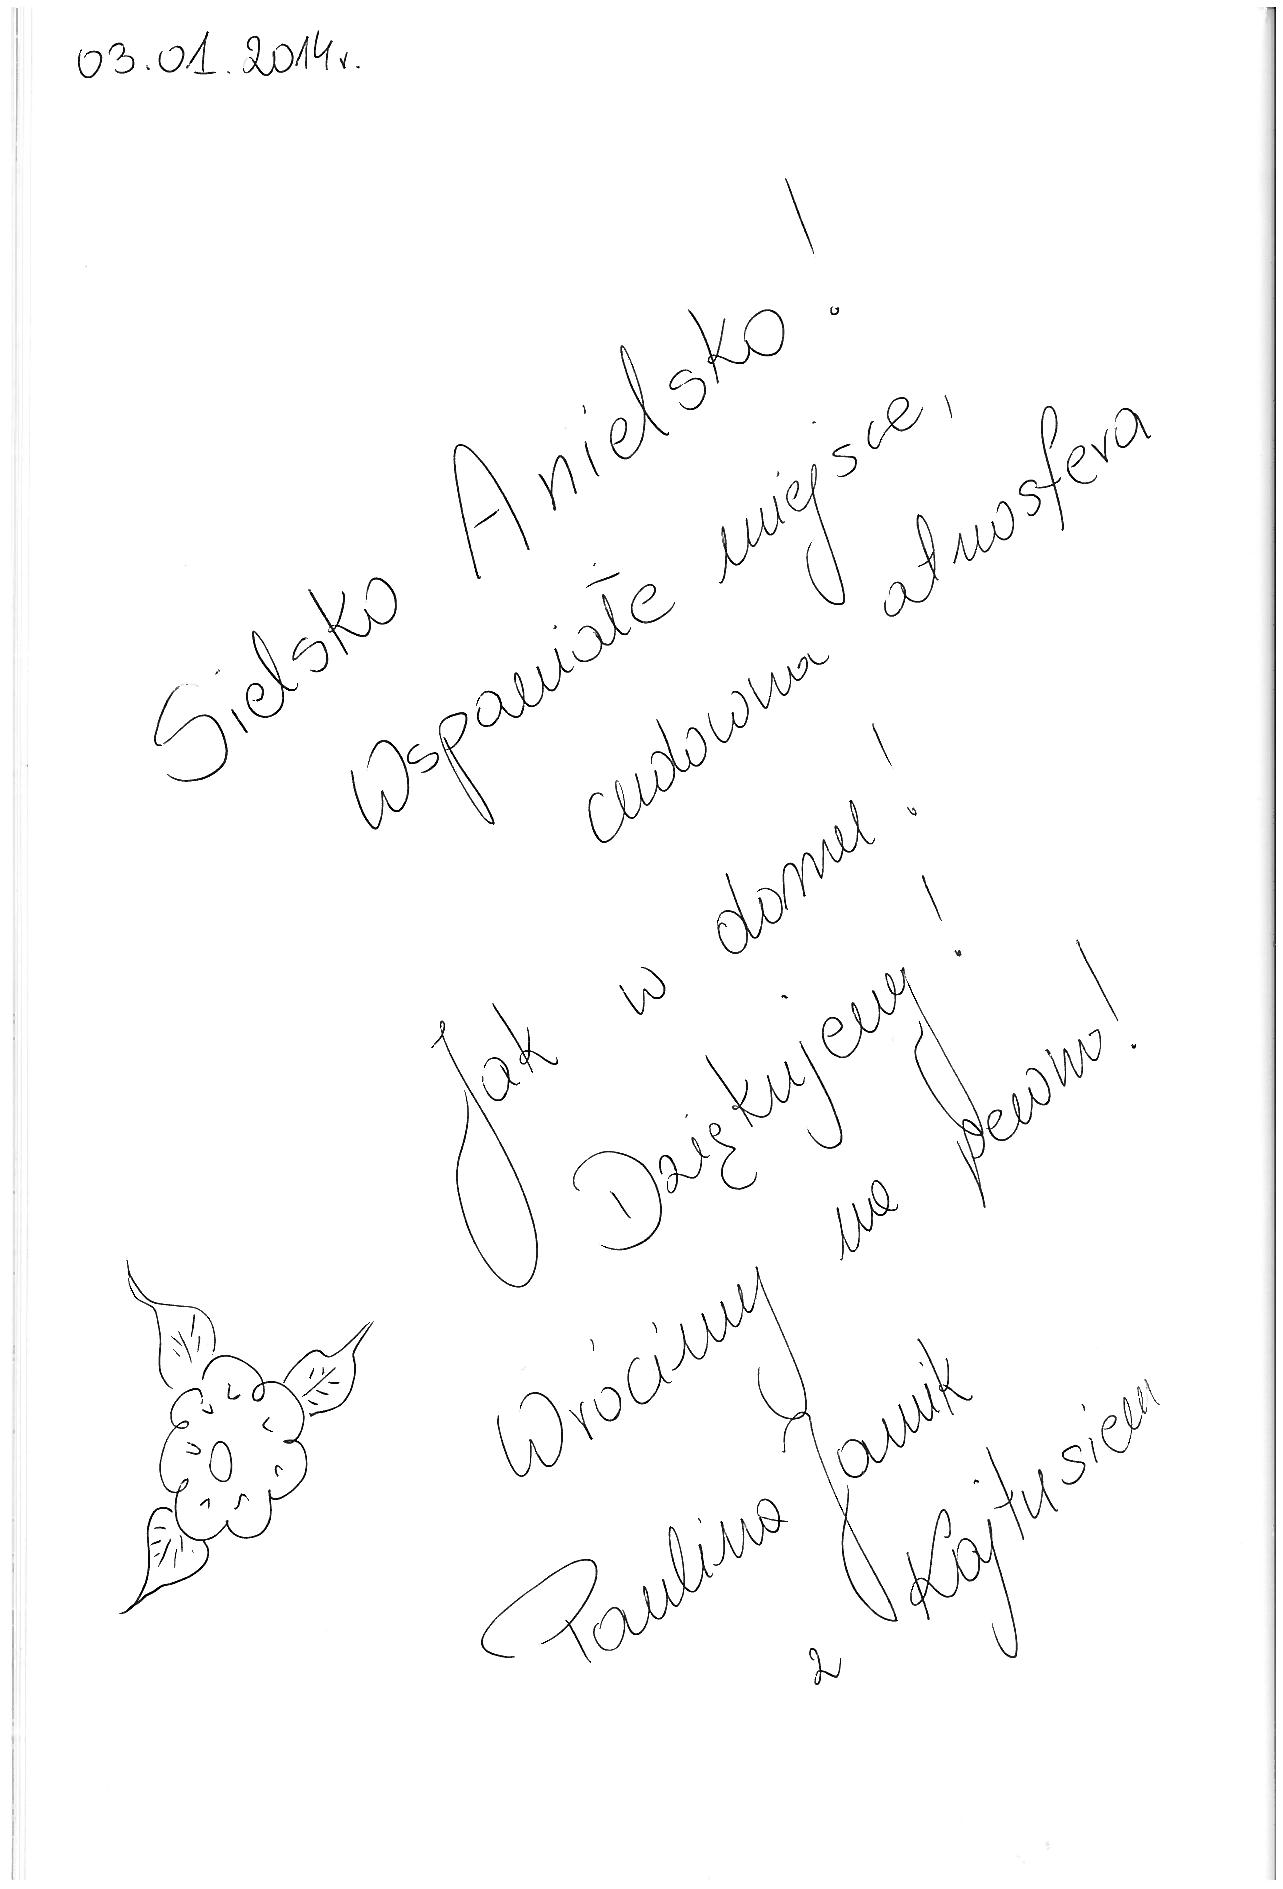 03.01.2014r.
Sielsko Anielsko!
Wspaniałe miejsce,
cudowna atmosfera
Jak w domu!
Dziękujemy!
Wrócimy na pewno!
Paulina Jamik
z Kajtusiem